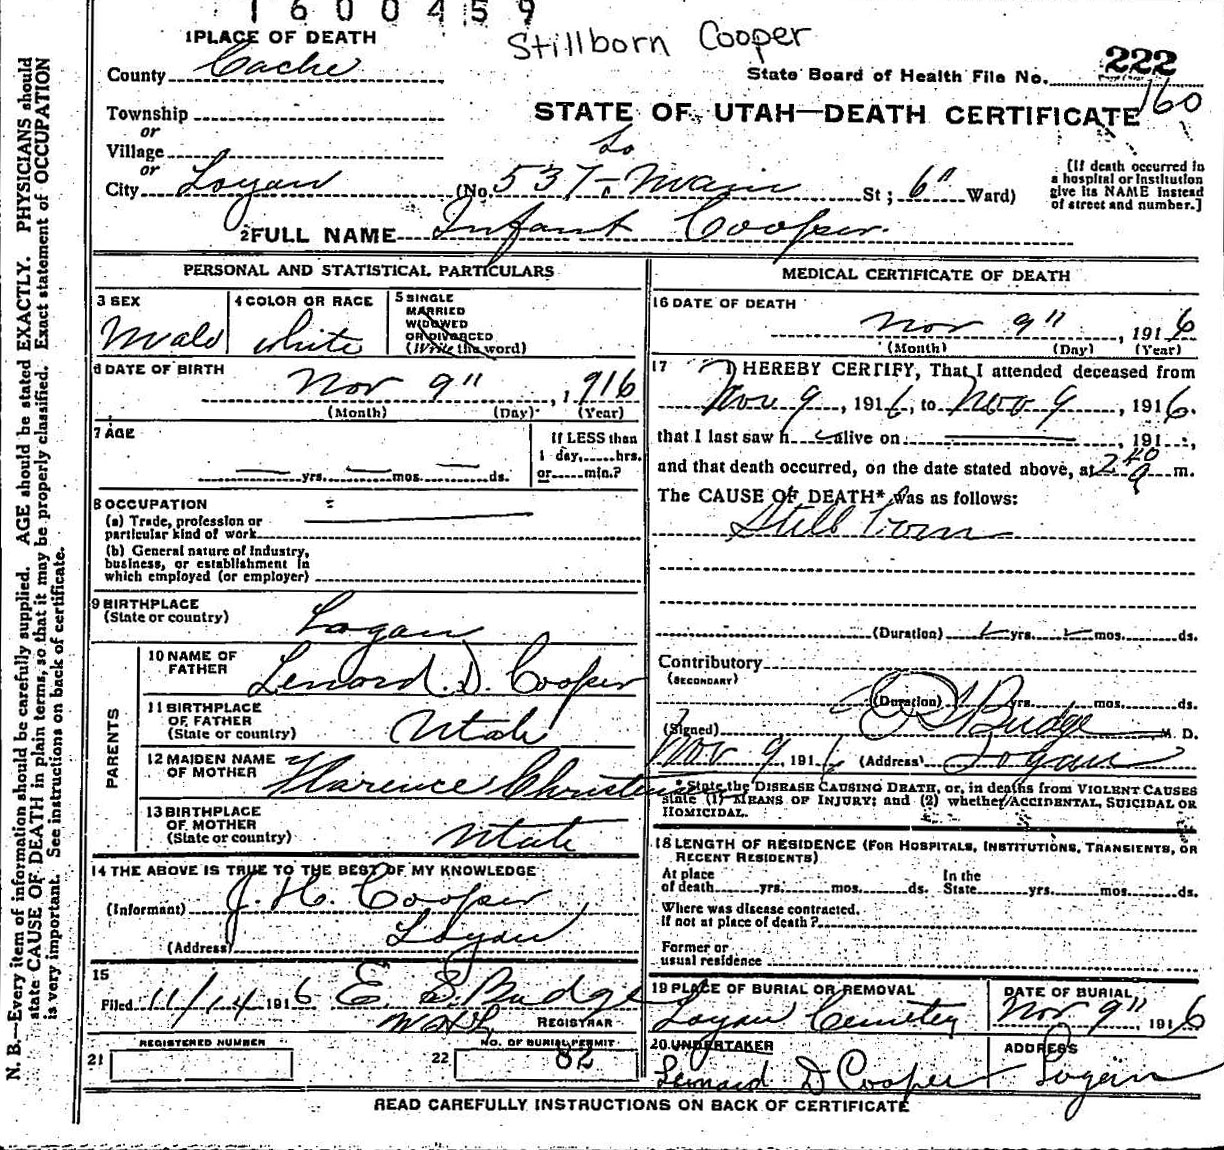 1600459
Stillborn Cooper
1 PLACE OF DEATH
County Cache
State Board of Health File No. 222
160
Township
or
Village
or
STATE OF UTAH—DEATH CERTIFICATE
City Logan (No. 537 So Main St; 6" Ward)
[If death occurred in a hospital or Institution give its NAME instead of street and number.]
2 FULL NAME Infant Cooper
PERSONAL AND STATISTICAL PARTICULARS
3 SEX
Male
4 COLOR OR RACE
White
5 SINGLE
MARRIED
WIDOWED
OR DIVORCED
(Write the word)
6 DATE OF BIRTH
Nov 9", 1916
(Month) (Day) (Year)
7 AGE
yrs. mos. ds.
If LESS than
1 day, hrs.
or min.?
8 OCCUPATION
(a) Trade, profession or
particular kind of work
(b) General nature of Industry,
business, or establishment in
which employed (or employer)
9 BIRTHPLACE
(State or country) Logan
PARENTS
10 NAME OF
FATHER Lenord D. Cooper
11 BIRTHPLACE
OF FATHER
(State or country) Utah
12 MAIDEN NAME
OF MOTHER Florence
13 BIRTHPLACE
OF MOTHER
(State or country) Utah
14 THE ABOVE IS TRUE TO THE BEST OF MY KNOWLEDGE
(Informant) J. H. Cooper
(Address) Logan
15
Filed 11/14 1916 E. S. Budge
REGISTRAR
REGISTERED NUMBER
21
NO. OF BURIAL PERMIT
22 82
MEDICAL CERTIFICATE OF DEATH
16 DATE OF DEATH
Nov 9", 1916
(Month) (Day) (Year)
17 I HEREBY CERTIFY, That I attended deceased from
Nov 9, 1916, to Nov 9, 1916.
that I last saw h alive on , 191 ,
and that death occurred, on the date stated above, at 2 40 a m.
The CAUSE OF DEATH* was as follows:
Still born
(Duration) yrs. mos. ds.
Contributory
(SECONDARY)
(Duration) yrs. mos. ds.
(Signed) Budge M. D.
Nov 9, 1916 (Address) Logan
* State the DISEASE CAUSING DEATH, or, in deaths from VIOLENT CAUSES
state (1) MEANS OF INJURY; and (2) whether ACCIDENTAL, SUICIDAL OR
HOMICIDAL.
18 LENGTH OF RESIDENCE (FOR HOSPITALS, INSTITUTIONS, TRANSIENTS, OR
RECENT RESIDENTS)
At place
of death yrs. mos. ds.
In the
State yrs. mos. ds.
Where was disease contracted.
If not at place of death?
Former or
usual residence
19 PLACE OF BURIAL OR REMOVAL
Logan Cemetey
DATE OF BURIAL
Nov 9", 1916
20 UNDERTAKER
Lennard D Cooper
ADDRESS
Logan
READ CAREFULLY INSTRUCTIONS ON BACK OF CERTIFICATE
N. B.—Every item of information should be carefully supplied. AGE should be stated EXACTLY. PHYSICIANS should
state CAUSE OF DEATH in plain terms, so that it may be properly classified. Exact statement of OCCUPATION
is very important. See instructions on back of certificate.